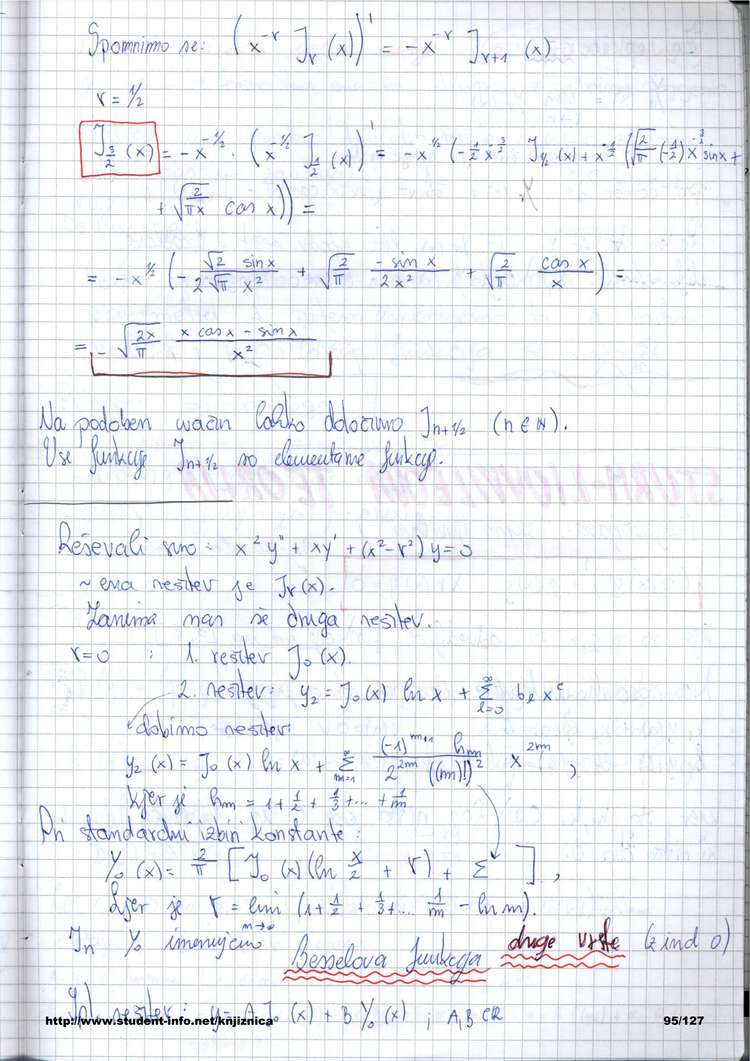 Spomnimo se: (x^{-r} J_r (x))' = -x^{-r} J_{r+1} (x)
r = 1/2
J_{3/2} (x) = -x^{-1/2} · (x^{-1/2} J_{1/2} (x))' = -x^{1/2} (-1/2 x^{-3/2} J_{1/2} (x) + x^{-1/2} (√(2/π) (-1/2) x^{-3/2} sin x +
+ √(2/πx) cos x)) =
= -x^{1/2} (- √2 sin x / 2√π x^2 + √(2/π) -sin x / 2x^2 + √(2/π) cos x / x) = ........
= - √(2x/π) x cos x - sin x / x^2
Na podoben način lahko določimo J_{n+1/2} (n ∈ N).
Vse funkcije J_{n+1/2} so elementarne funkcije.
Reševali smo: x^2 y'' + xy' + (x^2 - r^2) y = 0
~ ena rešitev je J_r (x).
Zanima nas še druga rešitev.
r=0 : 1. rešitev J_0 (x).
2. rešitev: y_2 = J_0 (x) ln x + Σ_{l=0}^∞ b_l x^l
dobimo rešitev:
y_2 (x) = J_0 (x) ln x + Σ_{m=1}^∞ (-1)^{m+1} h_m / 2^{2m} ((m)!)^2 x^{2m} ,
kjer je h_m = 1 + 1/2 + 1/3 + ... + 1/m
Pri standardni izbiri konstante:
Y_0 (x) = 2/π [J_0 (x) (ln x/2 + γ) + Σ ] ,
kjer je γ = lim_{m→∞} (1 + 1/2 + 1/3 + ... 1/m - ln m).
In Y_0 imenujemo Besselova funkcija druge vrste (z ind 0)
rešitev: y = A J_0 (x) + B Y_0 (x) ; A, B ∈ R
http://www.student-info.net/knjiznica
95/127